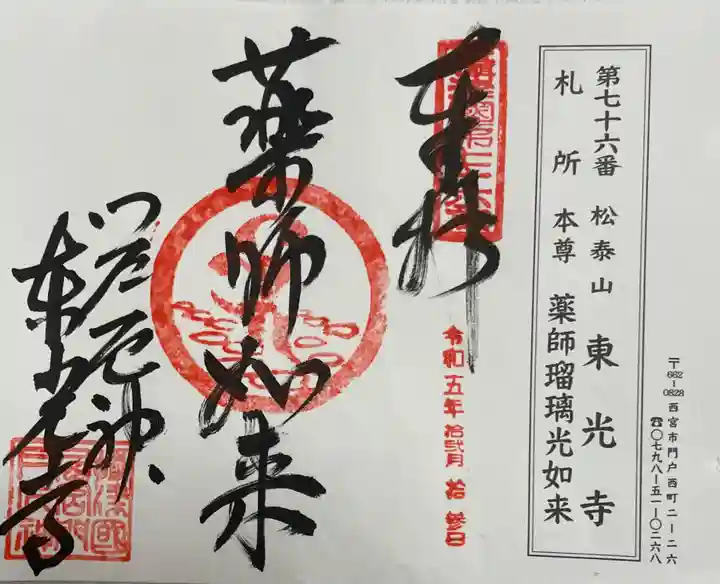 第七十六番 松泰山 東光寺
札所本尊 薬師瑠璃光如来
〒662-0828 西宮市門戸西町二-二六
☎〇七九八-五一-〇二六八
奉拝
令和五年 拾弐月 拾参日
薬師如来
門戸厄神
東光寺